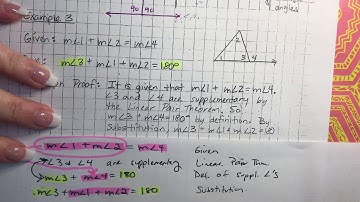 90 90
angles
Example 3
Given: m∠1 + m∠2 = m∠4
m∠3 + m∠1 + m∠2 = 180°
2
1 3 4
Proof: It is given that m∠1 + m∠2 = m∠4.
∠3 and ∠4 are supplementary by
the Linear Pair Theorem. So
m∠3 + m∠4 = 180° by definition. By
substitution, m∠3 + m∠1 + m∠2 = 180
m∠1 + m∠2 = m∠4 Given
∠3 & ∠4 are supplementary Linear Pair Thm.
m∠3 + m∠4 = 180 Def. of suppl. ∠'s
m∠3 + m∠1 + m∠2 = 180 Substitution.